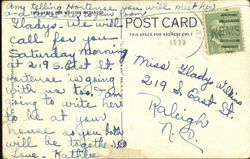 Any telling Hortense you will meet her
and
Gladys: We will
call for you
Saturday morning
at 219 S. East St.
Hortense is going
with us too. Am
going to write her
to be at your
house as you both
will be together.
Love. Kathleen
POST CARD
THIS SPACE FOR ADDRESS ONLY
1938
Miss Gladys
219 S. East St.
Raleigh
N.C.